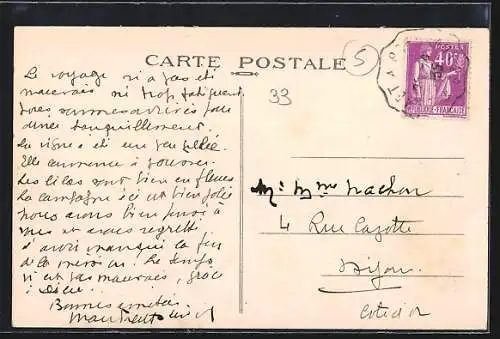 CARTE POSTALE
5
33
POSTES
40c
Le voyage n'a pas été
mauvais ni trop fatiguant
nous sommes arrivés pour
diner tranquillement
La vigne est un peu gelée.
Elle commence à pousser
Les lilas sont bien en fleurs
La campagne ici est bien jolie
nous avons bien pensé à
et avons regretté
d'avoir manqué la fin
de la mission. Le temps
n'est pas mauvais, grâce
à Dieu.
Bonnes amitiés
Mr Mme Machon
4 Rue Cazotte
Dijon
Cote d'or